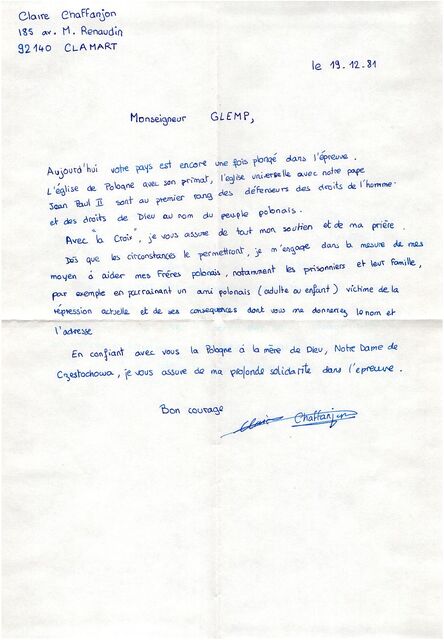 Claire Chaffanjon
185 av. M. Renaudin
92140 CLAMART
le 19.12.81
Monseigneur GLEMP,
Aujourd'hui votre pays est encore une fois plongé dans l'épreuve.
L'église de Pologne avec son primat, l'église universelle avec notre pape
Jean Paul II sont au premier rang des défenseurs des droits de l'homme
et des droits de Dieu au nom du peuple polonais.
Avec "la Croix", je vous assure de tout mon soutien et de ma prière.
Dès que les circonstances le permettront, je m'engage dans la mesure de mes
moyen à aider mes Frères polonais, notamment les prisonniers et leur famille,
par exemple en parrainant un ami polonais (adulte ou enfant) victime de la
répression actuelle et de ses consequences dont vous me donnerez le nom et
l'adresse
En confiant avec vous la Pologne à la mère de Dieu, Notre Dame de
Częstochowa, je vous assure de ma profonde solidarité dans l'epreuve.
Bon courage
Claire Chaffanjon